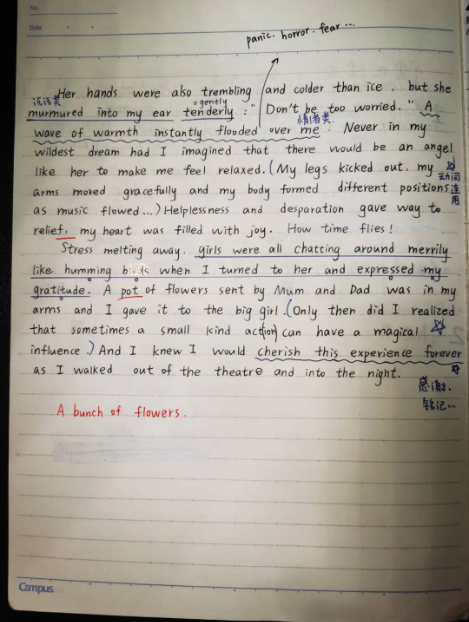 No.
Date
panic. horror. fear...
Her hands were also trembling and colder than ice, but she
说话类
=gently
murmured into my ear tenderly : " Don't be too worried. " A
情绪类
wave of warmth instantly flooded over me Never in my
wildest dream had I imagined that there would be an angel
like her to make me feel relaxed. (My legs kicked out, my
动词连用
arms moved gracefully and my body formed different positions
as music flowed...) Helplessness and desparation gave way to
relief, my heart was filled with joy. How time flies!
Stress melting away, girls were all chatting around merrily
like humming birds when I turned to her and expressed my
gratitude. A pot of flowers sent by Mum and Dad was in my
arms and I gave it to the big girl. (Only then did I realized
that sometimes a small kind action can have a magical
influence.) And I knew I would cherish this experience forever
as I walked out of the theatre and into the night.
感谢.
铭记...
A bunch of flowers.
Campus